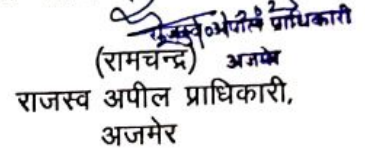 राजस्व अपील प्राधिकारी
(रामचन्द्र) अजमेर
राजस्व अपील प्राधिकारी,
अजमेर